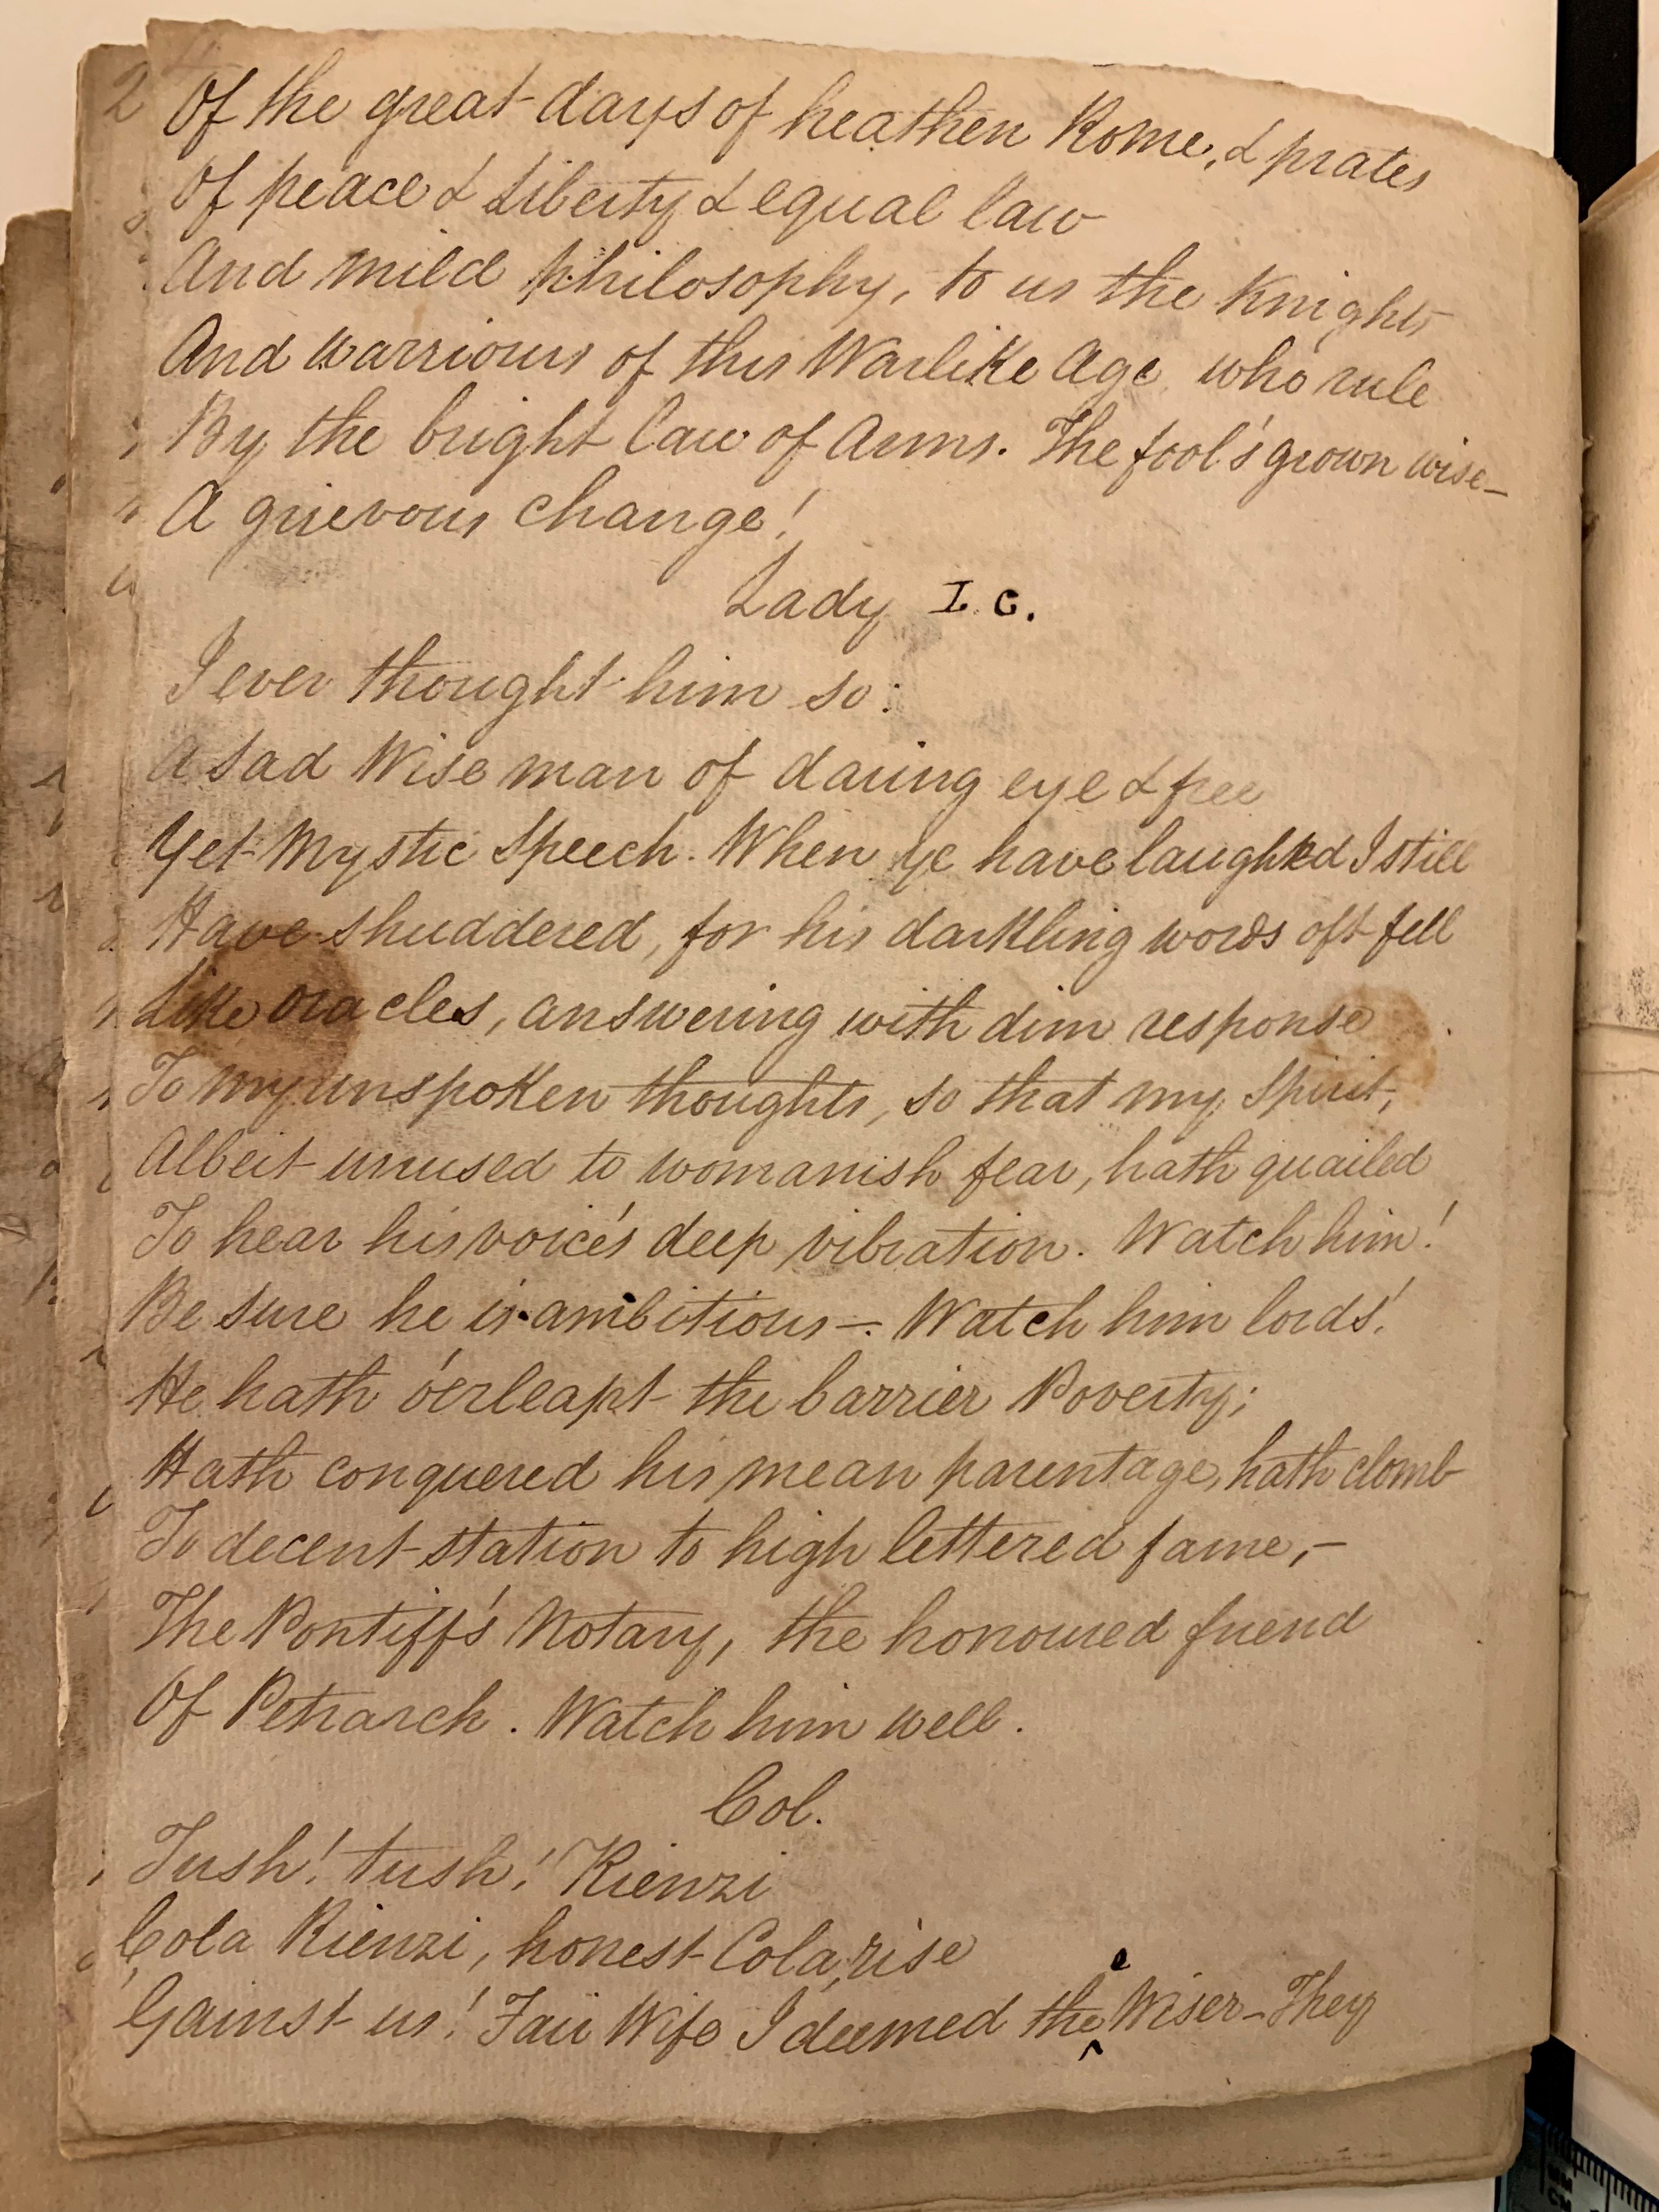 2 Of the great days of heathen Rome, & prates
Of peace & Liberty & equal law
And mild philosophy, to us the Knights
And warriours of this Warlike Age who rule
By the bright law of Arms. The fool's grown wise—
A grievous change!
Lady I. C.
I ever thought him so:
A sad Wise man of daring eye & free
Yet Mystic Speech. When ye have laughed I still
Have shuddered, for his darkling words oft fell
Like oracles, answering with dim response
To my unspoken thoughts, so that my Spirit,
Albeit unused to womanish fear, hath quailed
To hear his voice's deep vibration. Watch him!
Be sure he is ambitious—. Watch him lords!
He hath o'erleapt the barrier Poverty;
Hath conquered his mean parentage, hath clomb
To decent station to high lettered fame,—
The Pontiff's Notary, the honoured friend
Of Petrarch. Watch him well.
Col.
Tush! tush! Rienzi
Cola Rienzi, honest Cola, rise
'Gainst us! Fair Wife I deemed thee Wiser—They